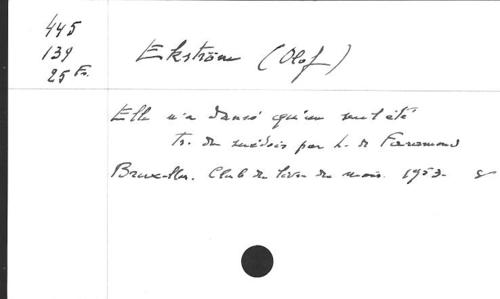 445
139
25 Fr.
Ekström (Olof)
Elle n'a dansé qu'un seul été
tr. du suédois par L. de Faramond
Bruxelles. Club du livre du mois. 1953. 8